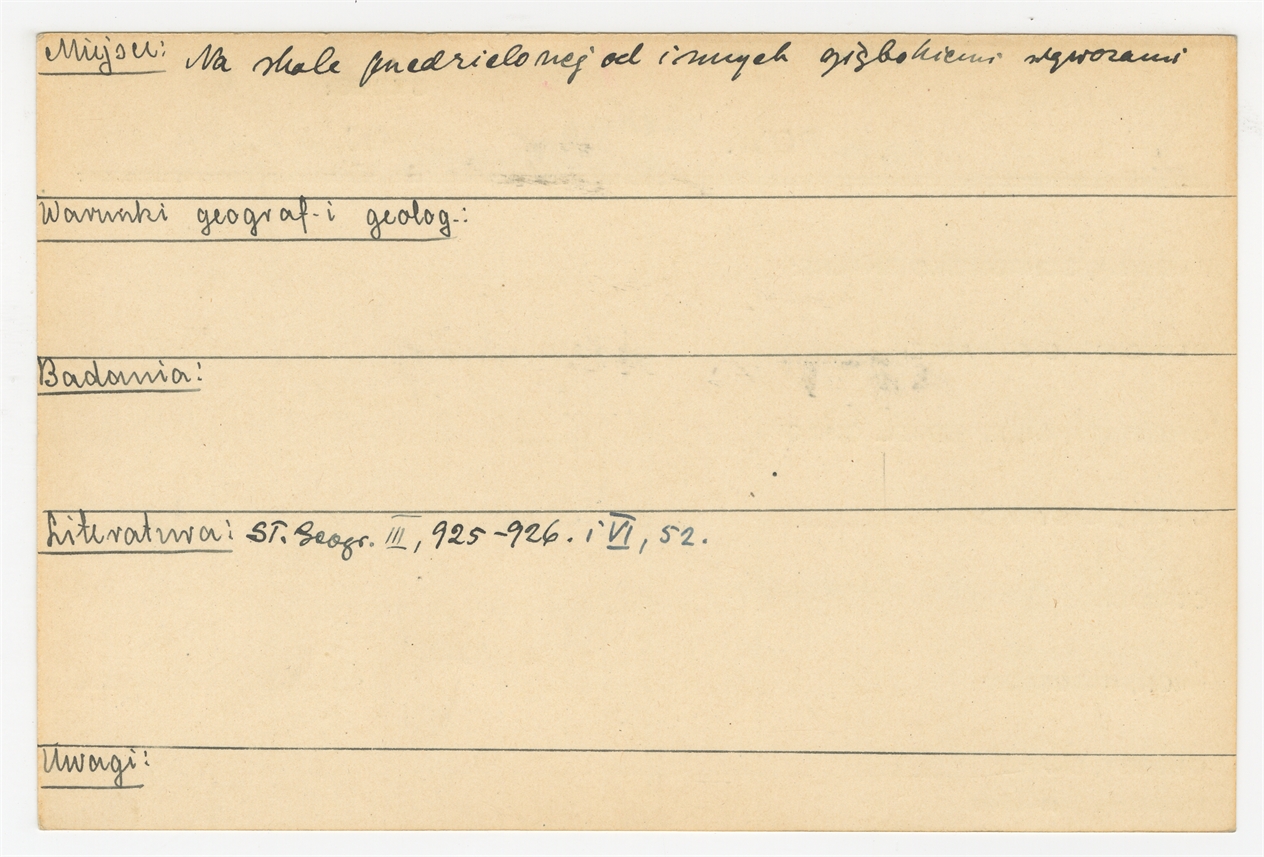 Miejsce: Na skale przedzielonej od innych głębokiemi wąwozami
Warunki geograf. i geolog.:
Badania:
Literatura: Sł. Geogr. III, 925-926. i VI, 52.
Uwagi: